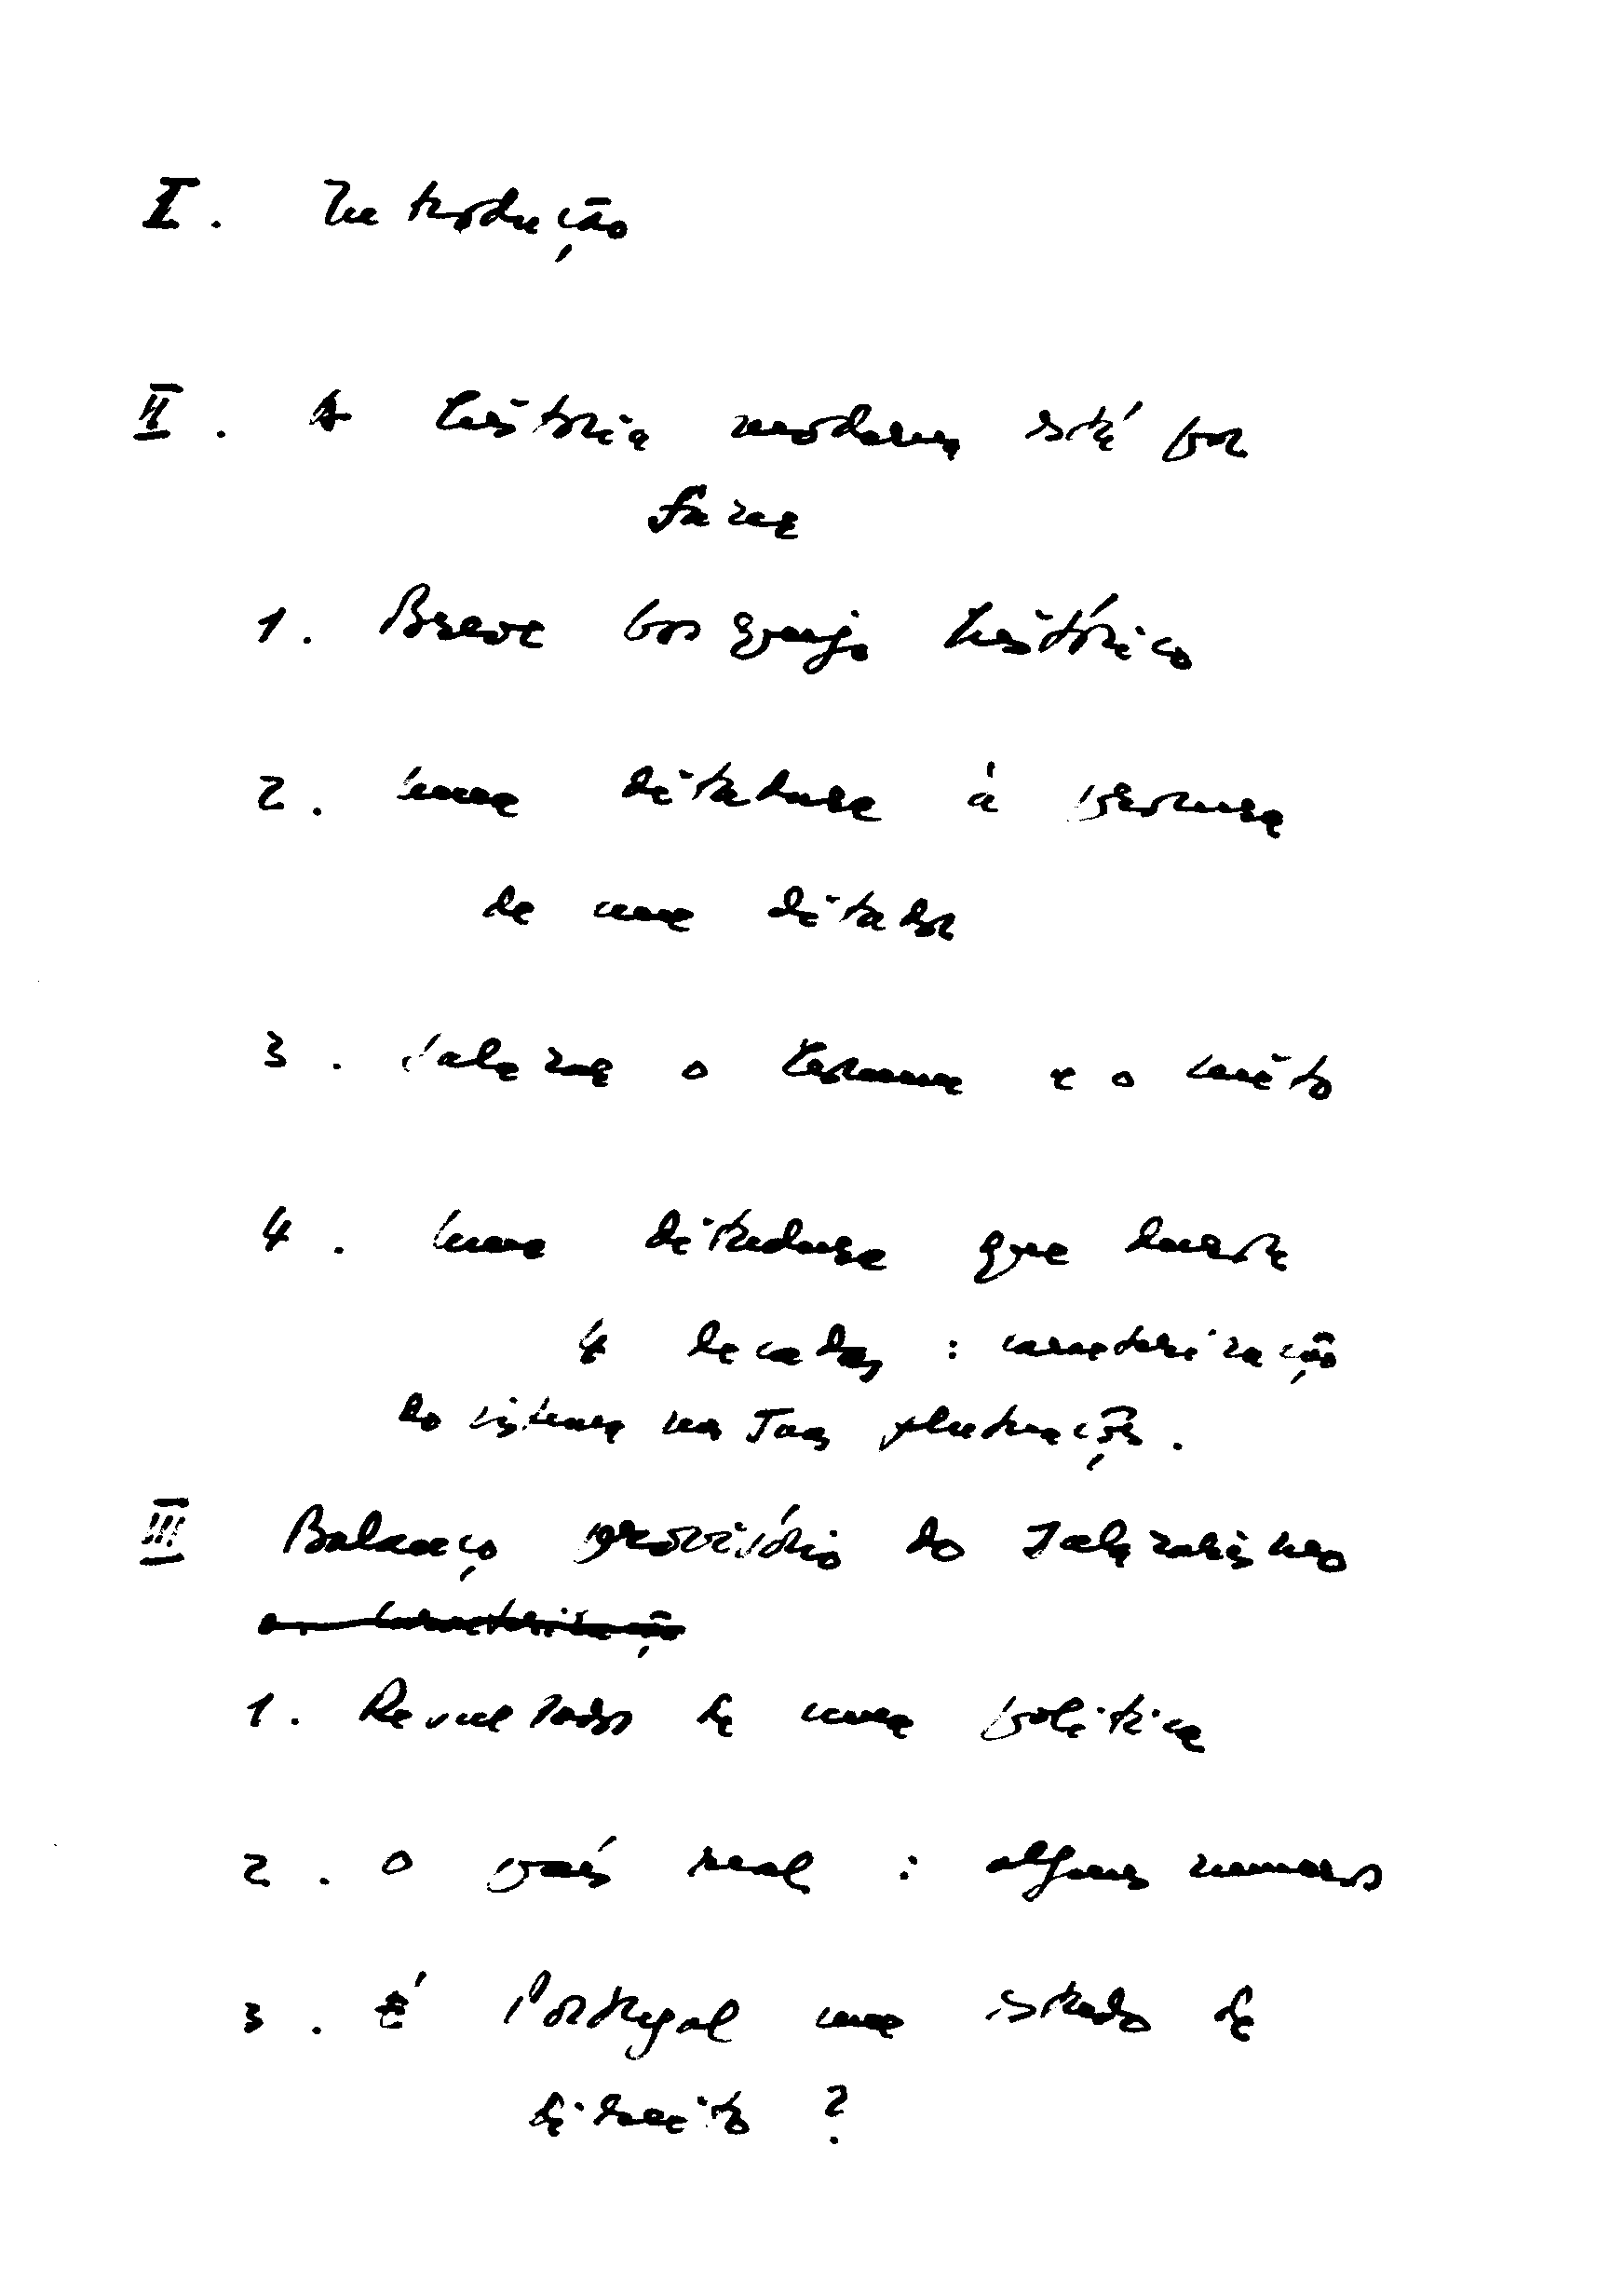 I. Introdução
II. A história moderna está por
fazer
1. Breve bosquejo histórico
2. Uma ditadura à procura
de um ditador
3. Salazar o homem e o mito
4. Uma ditadura que durou
4 decadas : caracterização
do sistema nas suas
III Balanço provisório do Salazarismo
1. Resultados de uma política
2. O país real : alguns numeros
3. É Portugal um estado de
direito ?